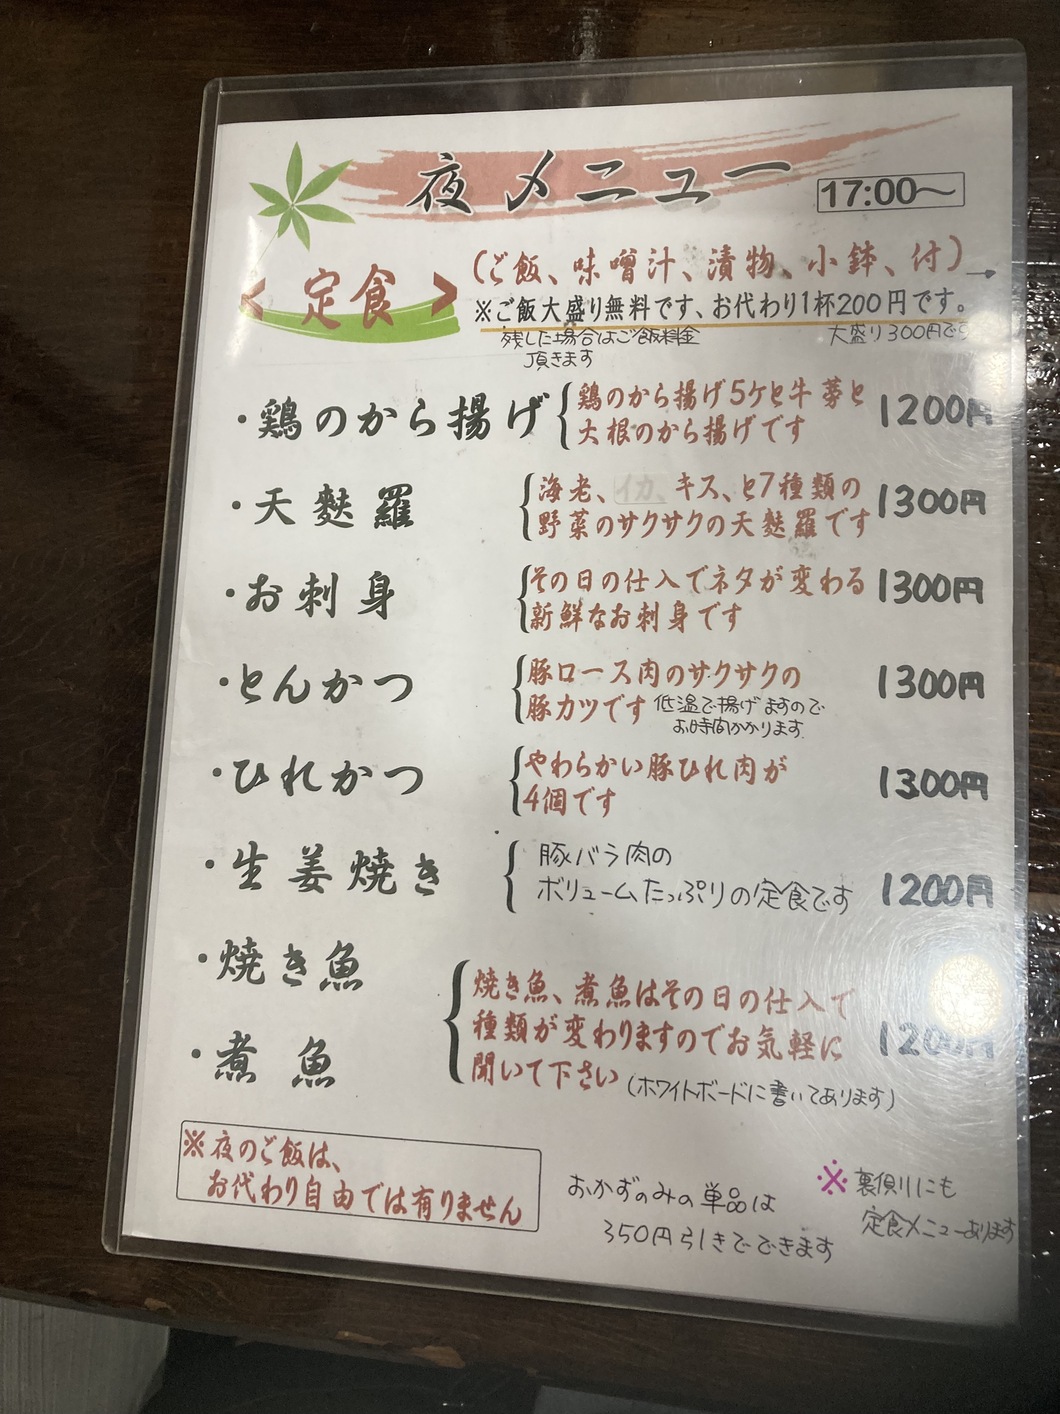 夜メニュー
17:00〜
<定食>
(ご飯、味噌汁、漬物、小鉢、付)→
※ご飯大盛り無料です、お代わり1杯200円です。
残した場合はご飯料金
頂きます
大盛り300円です
・鶏のから揚げ
鶏のから揚げ5ケと牛蒡と
大根のから揚げです
1200円
・天麩羅
海老、イカ、キス、と7種類の
野菜のサクサクの天麩羅です
1300円
・お刺身
その日の仕入でネタが変わる
新鮮なお刺身です
1300円
・とんかつ
豚ロース肉のサクサクの
豚カツです
低温で揚げますので
お時間かかります
1300円
・ひれかつ
やわらかい豚ひれ肉が
4個です
1300円
・生姜焼き
豚バラ肉の
ボリュームたっぷりの定食です
1200円
・焼き魚
・煮魚
焼き魚、煮魚はその日の仕入で
種類が変わりますのでお気軽に
聞いて下さい
(ホワイトボードに書いてあります)
1200円
※夜のご飯は、
お代わり自由では有りません
おかずのみの単品は
350円引きでできます
※裏側にも
定食メニューあります